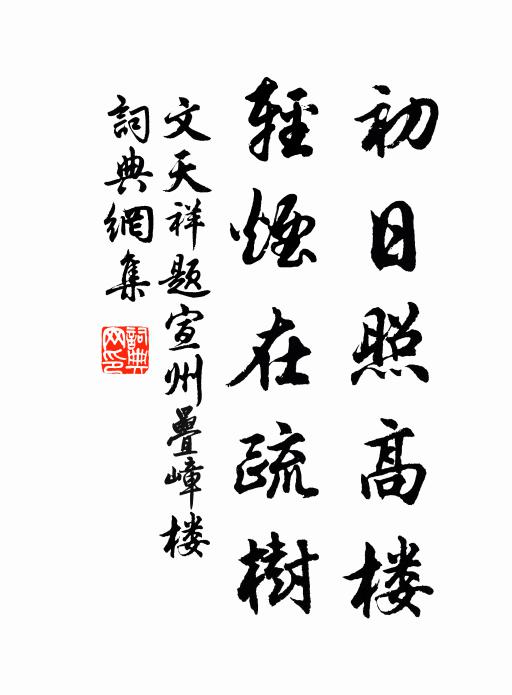 初日照高楼
輕煙在疏樹
文天祥题宣州疊嶂楼
詞典網集
詞典
网印